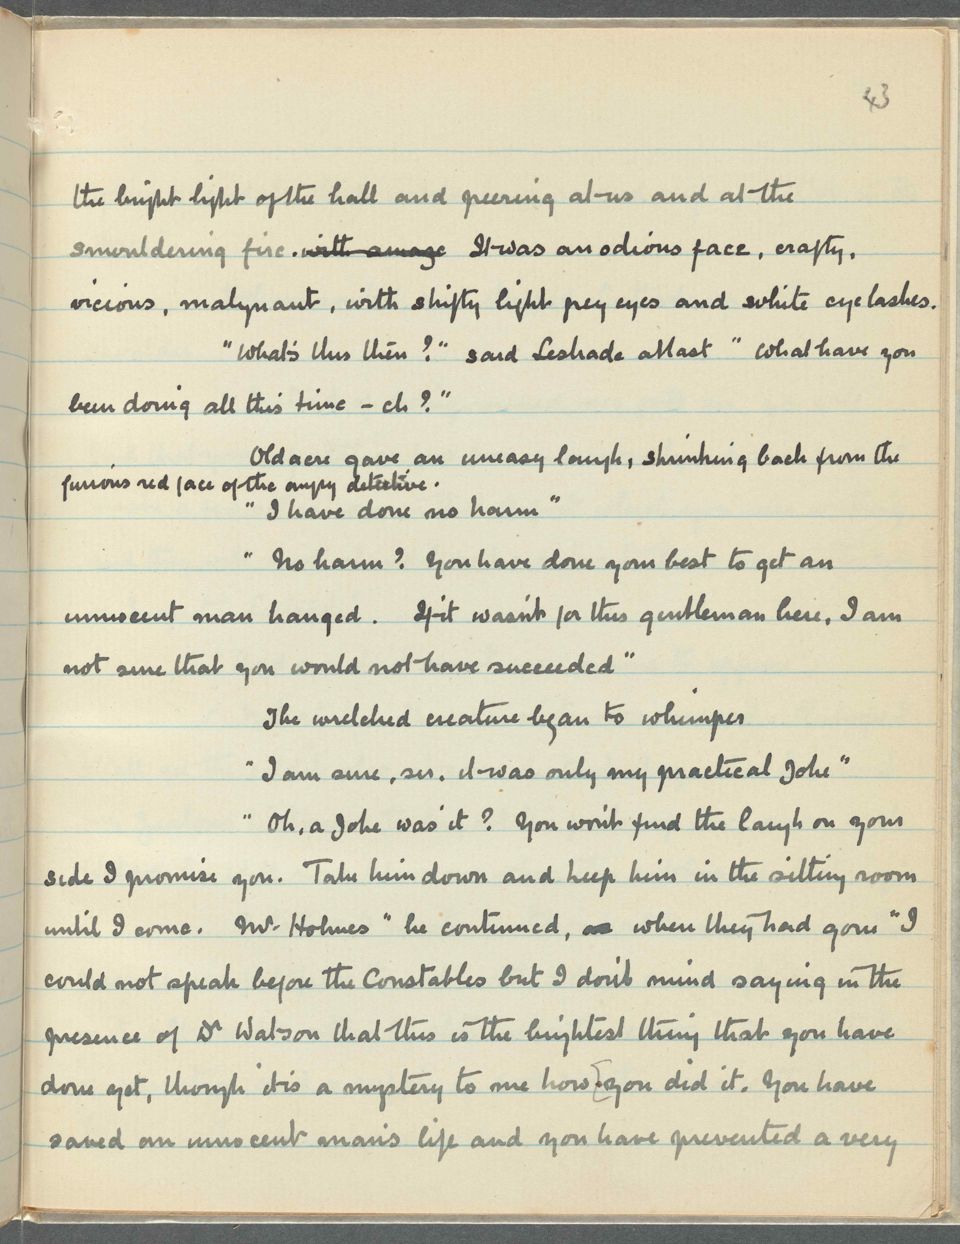 43
the bright light of the hall and peering at us and at the
smouldering fire. with amaze It was an odious face, crafty,
vicious, malignant, with shifty light grey eyes and white eyelashes.
"What's this then?" said Lestrade at last "What have you
been doing all this time – eh?"
Oldacre gave an uneasy laugh, shrinking back from the
furious red face of the angry detective.
"I have done no harm"
"No harm? You have done your best to get an
innocent man hanged. If it wasn't for this gentleman here, I am
not sure that you would not have succeeded"
The wretched creature began to whimper
"I am sure, sir, it was only my practical Joke"
"Oh, a Joke was it? You won't find the laugh on your
side I promise you. Take him down and keep him in the sitting room
until I come. Mr Holmes" he continued, as when they had gone "I
could not speak before the Constables but I don't mind saying in the
presence of Dr Watson that this is the brightest thing that you have
done yet, though it is a mystery to me how [you did it. You have
saved an innocent man's life and you have prevented a very